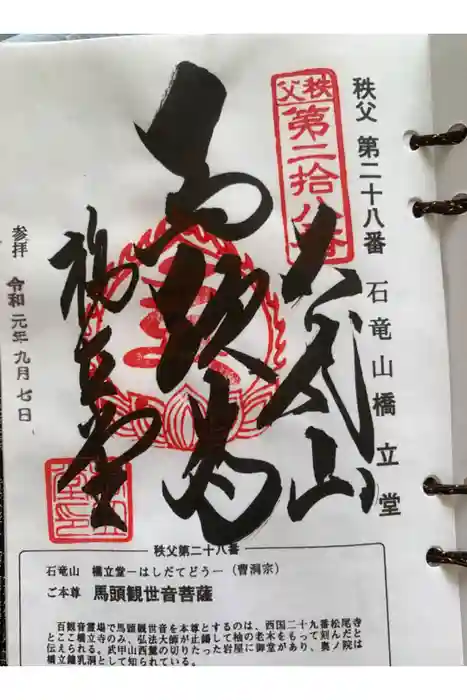 秩父 第二十八番 石竜山橋立堂
秩父
第二拾八番
武山
馬頭尊
橋立堂
参拝 令和元年九月七日
秩父第二十八番
石竜山 橋立堂―はしだてどう―(曹洞宗)
ご本尊 馬頭観世音菩薩
百観音霊場で馬頭観世音を本尊とするのは、西国二十九番松尾寺
とここ橋立寺のみ、弘法大師が止錫して柚の老木をもって刻んだと
伝えられる。武甲山西麓の切りたった岩屋に御堂があり、奥ノ院は
橋立鐘乳洞として知られている。